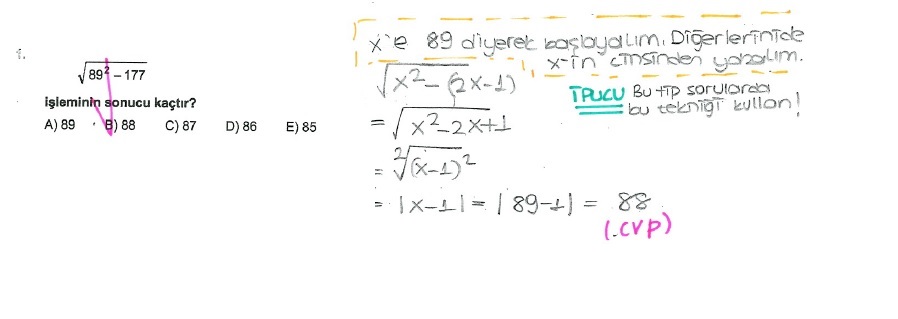 1.
√89² – 177
işleminin sonucu kaçtır?
A) 89 B) 88 C) 87 D) 86 E) 85
x'e 89 diyerek başlayalım. Diğerlerinide
x-in cinsinden yazalım.
√x²-(2x-1)
İPUCU Bu tip sorularda
bu tekniği kullan!
= √x²-2x+1
= ²√(x-1)²
= |x-1| = |89-1| = 88
(.cvp)